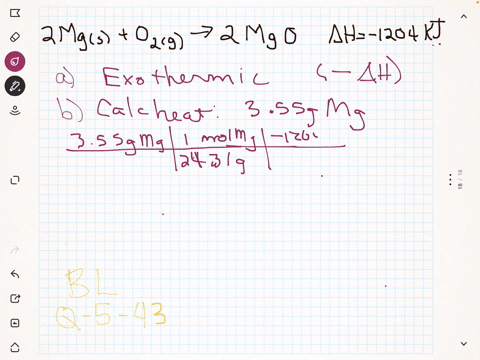 2Mg(s) + O2(g) → 2 MgO ΔH=-1204 KJ
a) Exothermic (- ΔH)
b) Calc heat: 3.55g Mg
3.55g Mg | 1 mol Mg | -120
24.31g
BL
Q-5-43